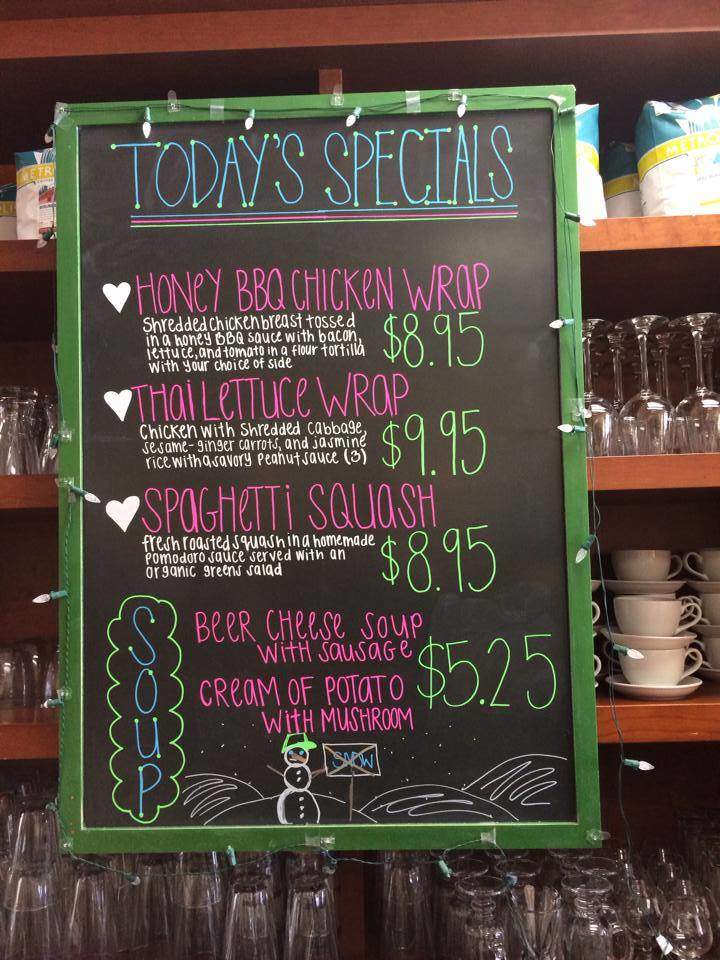 TODAY'S SPECIALS
HONEY BBQ CHICKEN WRAP
Shredded chicken breast tossed
in a honey BBQ sauce with bacon,
lettuce, and tomato in a flour tortilla
with your choice of side
$8.95
THAI LETTUCE WRAP
Chicken with shredded cabbage,
sesame-ginger carrots, and jasmine
rice with a savory peanut sauce (3)
$9.95
SPAGHETTI SQUASH
fresh roasted squash in a homemade
pomodoro sauce served with an
organic greens salad
$8.95
SOUP
BEER CHEESE SOUP
WITH SAUSAGE
CREAM OF POTATO
WITH MUSHROOM
$5.25
SNOW
METRO